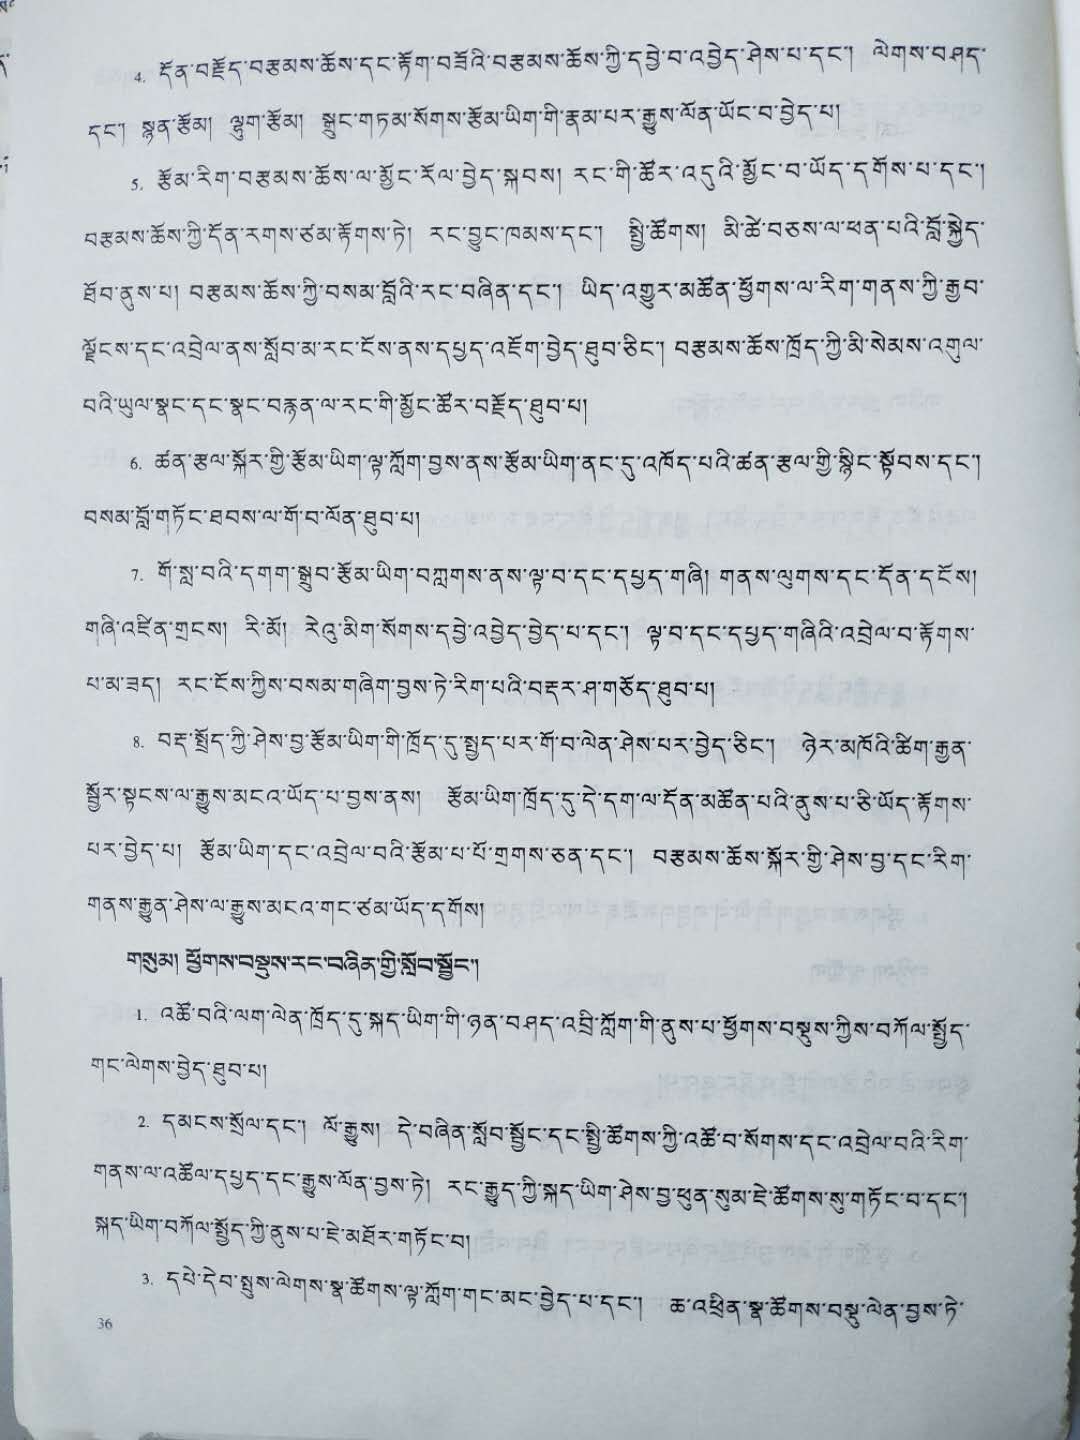 4. དོན་བརྗོད་བརྩམས་ཆོས་དང་རྟོག་བཟོའི་བརྩམས་ཆོས་ཀྱི་དབྱེ་བ་འབྱེད་ཤེས་པ་དང་། ལེགས་བཤད་
དང་། སྙན་རྩོམ། ལྷུག་རྩོམ། སྒྲུང་གཏམ་སོགས་རྩོམ་ཡིག་གི་རྣམ་པར་རྒྱུས་ལོན་ཡོང་བ་བྱེད་པ།
5. རྩོམ་རིག་བརྩམས་ཆོས་ལ་མྱོང་རོལ་བྱེད་སྐབས། རང་གི་ཚོར་འདུའི་མྱོང་བ་ཡོད་དགོས་པ་དང་།
བརྩམས་ཆོས་ཀྱི་དོན་རགས་ཙམ་རྟོགས་ཏེ། རང་བྱུང་ཁམས་དང་། སྤྱི་ཚོགས། མི་ཚེ་བཅས་ལ་ཕན་པའི་བློ་སྐྱེད་
ཐོབ་ནུས་པ། བརྩམས་ཆོས་ཀྱི་བསམ་བློའི་རང་བཞིན་དང་། ཡིད་འགྱུར་མཚོན་ཕྱོགས་ལ་རིག་གནས་ཀྱི་རྒྱབ་
ལྗོངས་དང་འབྲེལ་ནས་སློབ་མ་རང་ངོས་ནས་དཔྱད་འཇོག་བྱེད་ཐུབ་ཅིང་། བརྩམས་ཆོས་ཁྲོད་ཀྱི་མི་སེམས་འགུལ་
བའི་ཡུལ་སྣང་དང་སྣང་བརྙན་ལ་རང་གི་མྱོང་ཚོར་བརྗོད་ཐུབ་པ།
6. ཚན་རྩལ་སྐོར་གྱི་རྩོམ་ཡིག་ལྟ་ཀློག་བྱས་ནས་རྩོམ་ཡིག་ནང་དུ་འཁོད་པའི་ཚན་རྩལ་གྱི་སྙིང་སྟོབས་དང་།
བསམ་བློ་གཏོང་ཐབས་ལ་གོ་བ་ལོན་ཐུབ་པ།
7. གོ་སླ་བའི་དགག་སྒྲུབ་རྩོམ་ཡིག་བཀླགས་ནས་ལྟ་བ་དང་དཔྱད་གཞི། གནས་ལུགས་དང་དོན་དངོས།
གཞི་འཛིན་གྲངས། རི་མོ། རེའུ་མིག་སོགས་དབྱེ་འབྱེད་བྱེད་པ་དང་། ལྟ་བ་དང་དཔྱད་གཞིའི་འབྲེལ་བ་རྟོགས་
པ་མ་ཟད། རང་ངོས་ཀྱིས་བསམ་གཞིག་བྱས་ཏེ་རིག་པའི་བརྡར་ཤ་གཅོད་ཐུབ་པ།
8. བརྡ་སྤྲོད་ཀྱི་ཤེས་བྱ་རྩོམ་ཡིག་གི་ཁྲོད་དུ་སྤྱད་པར་གོ་བ་ལེན་ཤེས་པར་བྱེད་ཅིང་། ཉེར་མཁོའི་ཚིག་རྒྱན་
སྦྱོར་སྟངས་ལ་རྒྱུས་མངའ་ཡོད་པ་བྱས་ནས། རྩོམ་ཡིག་ཁྲོད་དུ་དེ་དག་ལ་དོན་མཚོན་པའི་ནུས་པ་ཅི་ཡོད་རྟོགས་
པར་བྱེད་པ། རྩོམ་ཡིག་དང་འབྲེལ་བའི་རྩོམ་པ་པོ་གྲགས་ཅན་དང་། བརྩམས་ཆོས་སྐོར་གྱི་ཤེས་བྱ་དང་རིག་
གནས་རྒྱུན་ཤེས་ལ་རྒྱུས་མངའ་གང་ཙམ་ཡོད་དགོས།
གསུམ། ཕྱོགས་བསྡུས་རང་བཞིན་གྱི་སློབ་སྦྱོང་།
1. འཚོ་བའི་ལག་ལེན་ཁྲོད་དུ་སྐད་ཡིག་གི་ཉན་བཤད་འབྲི་ཀློག་གི་ནུས་པ་ཕྱོགས་བསྡུས་ཀྱིས་བཀོལ་སྤྱོད་
གང་ལེགས་བྱེད་ཐུབ་པ།
2. དམངས་སྲོལ་དང་། ལོ་རྒྱུས། དེ་བཞིན་སློབ་སྦྱོང་དང་སྤྱི་ཚོགས་ཀྱི་འཚོ་བ་སོགས་དང་འབྲེལ་བའི་རིག་
གནས་ལ་འཚོལ་དཔྱད་དང་རྒྱུས་ལོན་བྱས་ཏེ། རང་རྒྱུད་ཀྱི་སྐད་ཡིག་ཤེས་བྱ་ཕུན་སུམ་ཇེ་ཚོགས་སུ་གཏོང་བ་དང་།
སྐད་ཡིག་བཀོལ་སྤྱོད་ཀྱི་ནུས་པ་ཇེ་མཐོར་གཏོང་བ།
3. དཔེ་དེབ་སྤུས་ལེགས་སྣ་ཚོགས་ལྟ་ཀློག་གང་མང་བྱེད་པ་དང་། ཆ་འཕྲིན་སྣ་ཚོགས་བསྡུ་ལེན་བྱས་ཏེ་
36